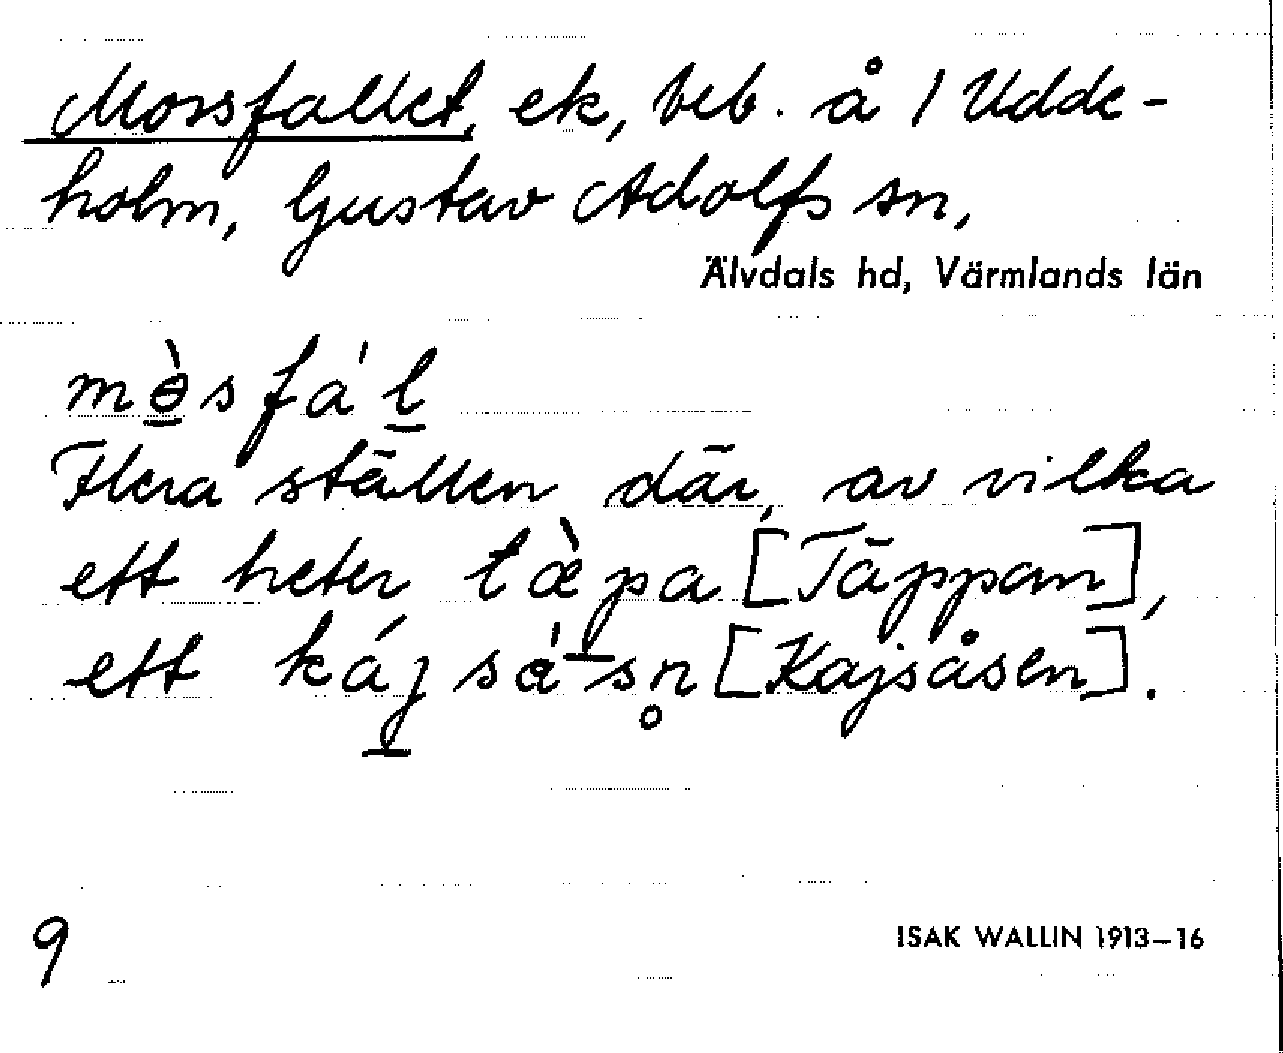 Morsfallet, ek, beb. å 1 Udde-
holm, Gustav Adolfs sn,
Älvdals hd, Värmlands län
mə̀sfa'l
Flera ställen där, av vilka
ett heter tæ̀pa [Täppan],
ett kájså'sn̥ [Kajsåsen].
9
ISAK WALLIN 1913-16